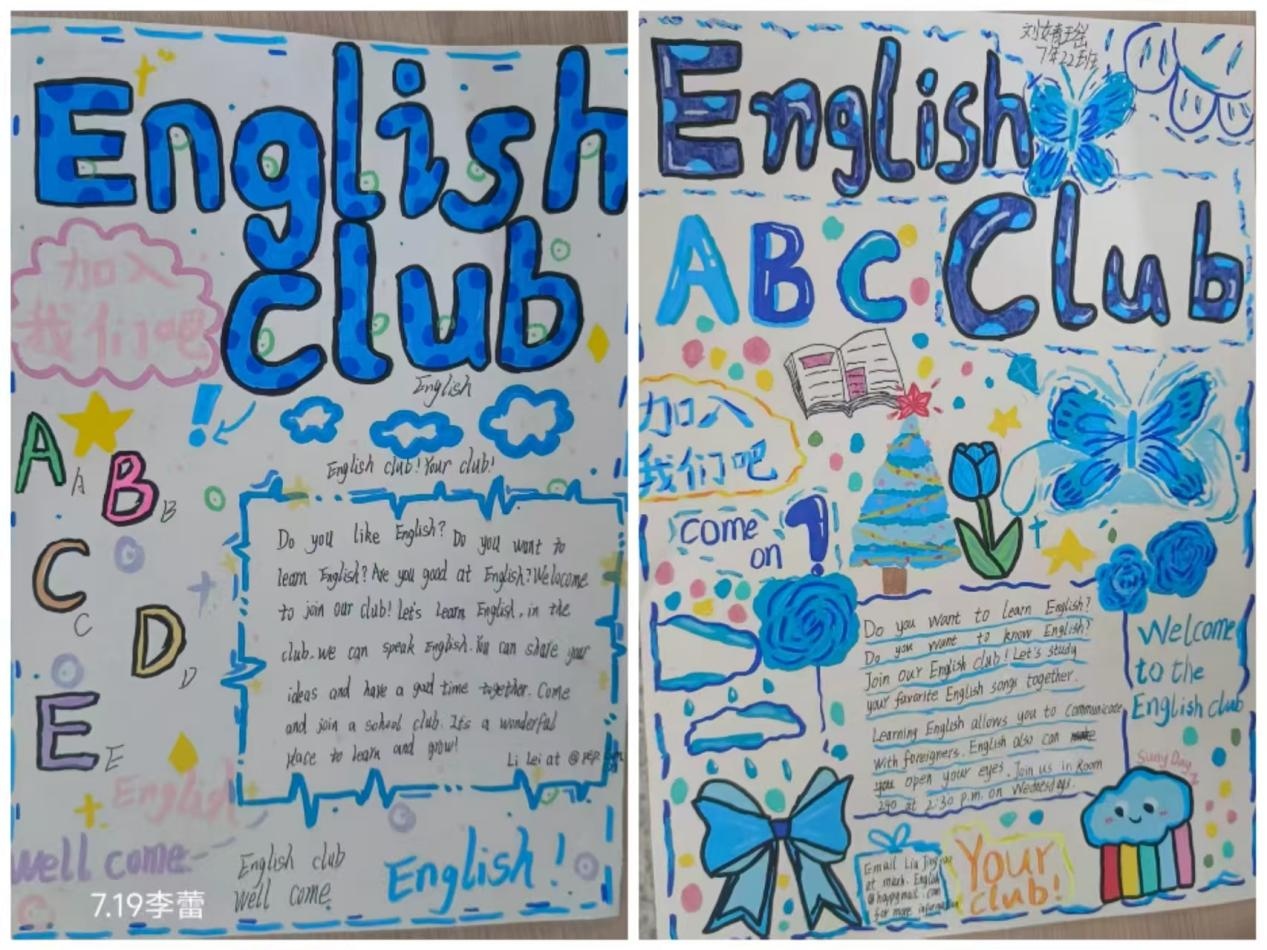 English
Club
加入
我们吧
English
English club! Your club!
A
A
B
B
C
C
D
D
E
E
Do you like English? Do you want to
learn English? Are you good at English? Welocome
to join our club! Let's learn English, in the
club. we can speak English. You can share your
ideas and have a good time together. Come
and join a school club. It's a wonderful
place to learn and grow!
Li Lei at @
English
well come
English club
well come
English!
7.19李蕾
刘婧瑶
7年22班
English
Club
A B C
加入
我们吧
come
on
Do you want to learn English?
Do you want to know English?
Join our English club! Let's study
your favorite English songs together.
Learning English allows you to communicate
with foreigners. English also can
you open your eyes. Join us in Room
240 at 2:30 p.m. on Wednesdays.
Welcome
to the
English club
Suny Day
Email Liu
at mark. English
@happymail.com
for more information
Your
club!